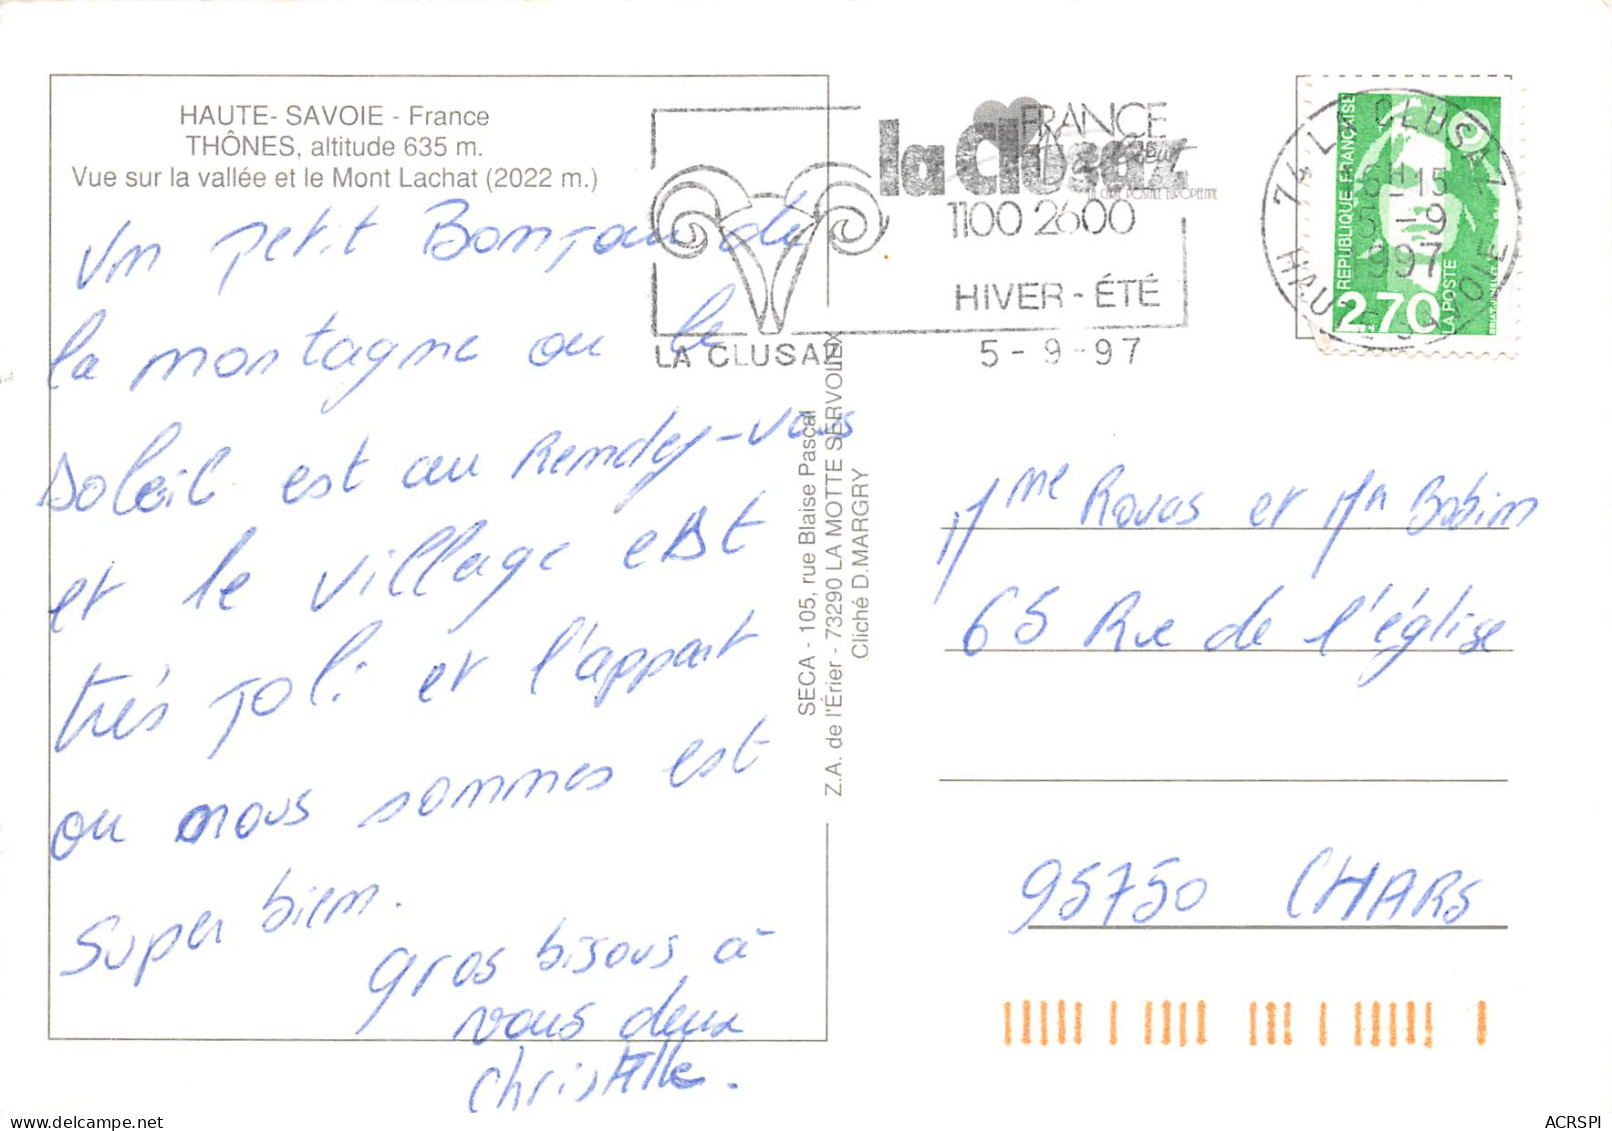 HAUTE- SAVOIE - France
THÔNES, altitude 635 m.
Vue sur la vallée et le Mont Lachat (2022 m.)
Un petit Bonjour de
la montagne ou le
soleil est au Rendez-vous
et le village est
très joli et l'appart
ou nous sommes est
Super bien.
gros bisous à
vous deux
Christelle.
FRANCE
la Clusaz
LA CARTE POSTALE EUROPEENNE
1100 2600
HIVER - ÉTÉ
LA CLUSAZ
5 - 9 - 97
74 LA CLUSAZ
-15
5 -9
1997
HAUTE SAVOIE
REPUBLIQUE FRANÇAISE
2,70
LA POSTE
SECA - 105, rue Blaise Pascal
Z.A. de l'Érier - 73290 LA MOTTE SERVOLEX
Cliché D.MARGRY
Mme Rovas et Mr Bobim
65 Rue de l'église
95750 CHARS
ACRSPI